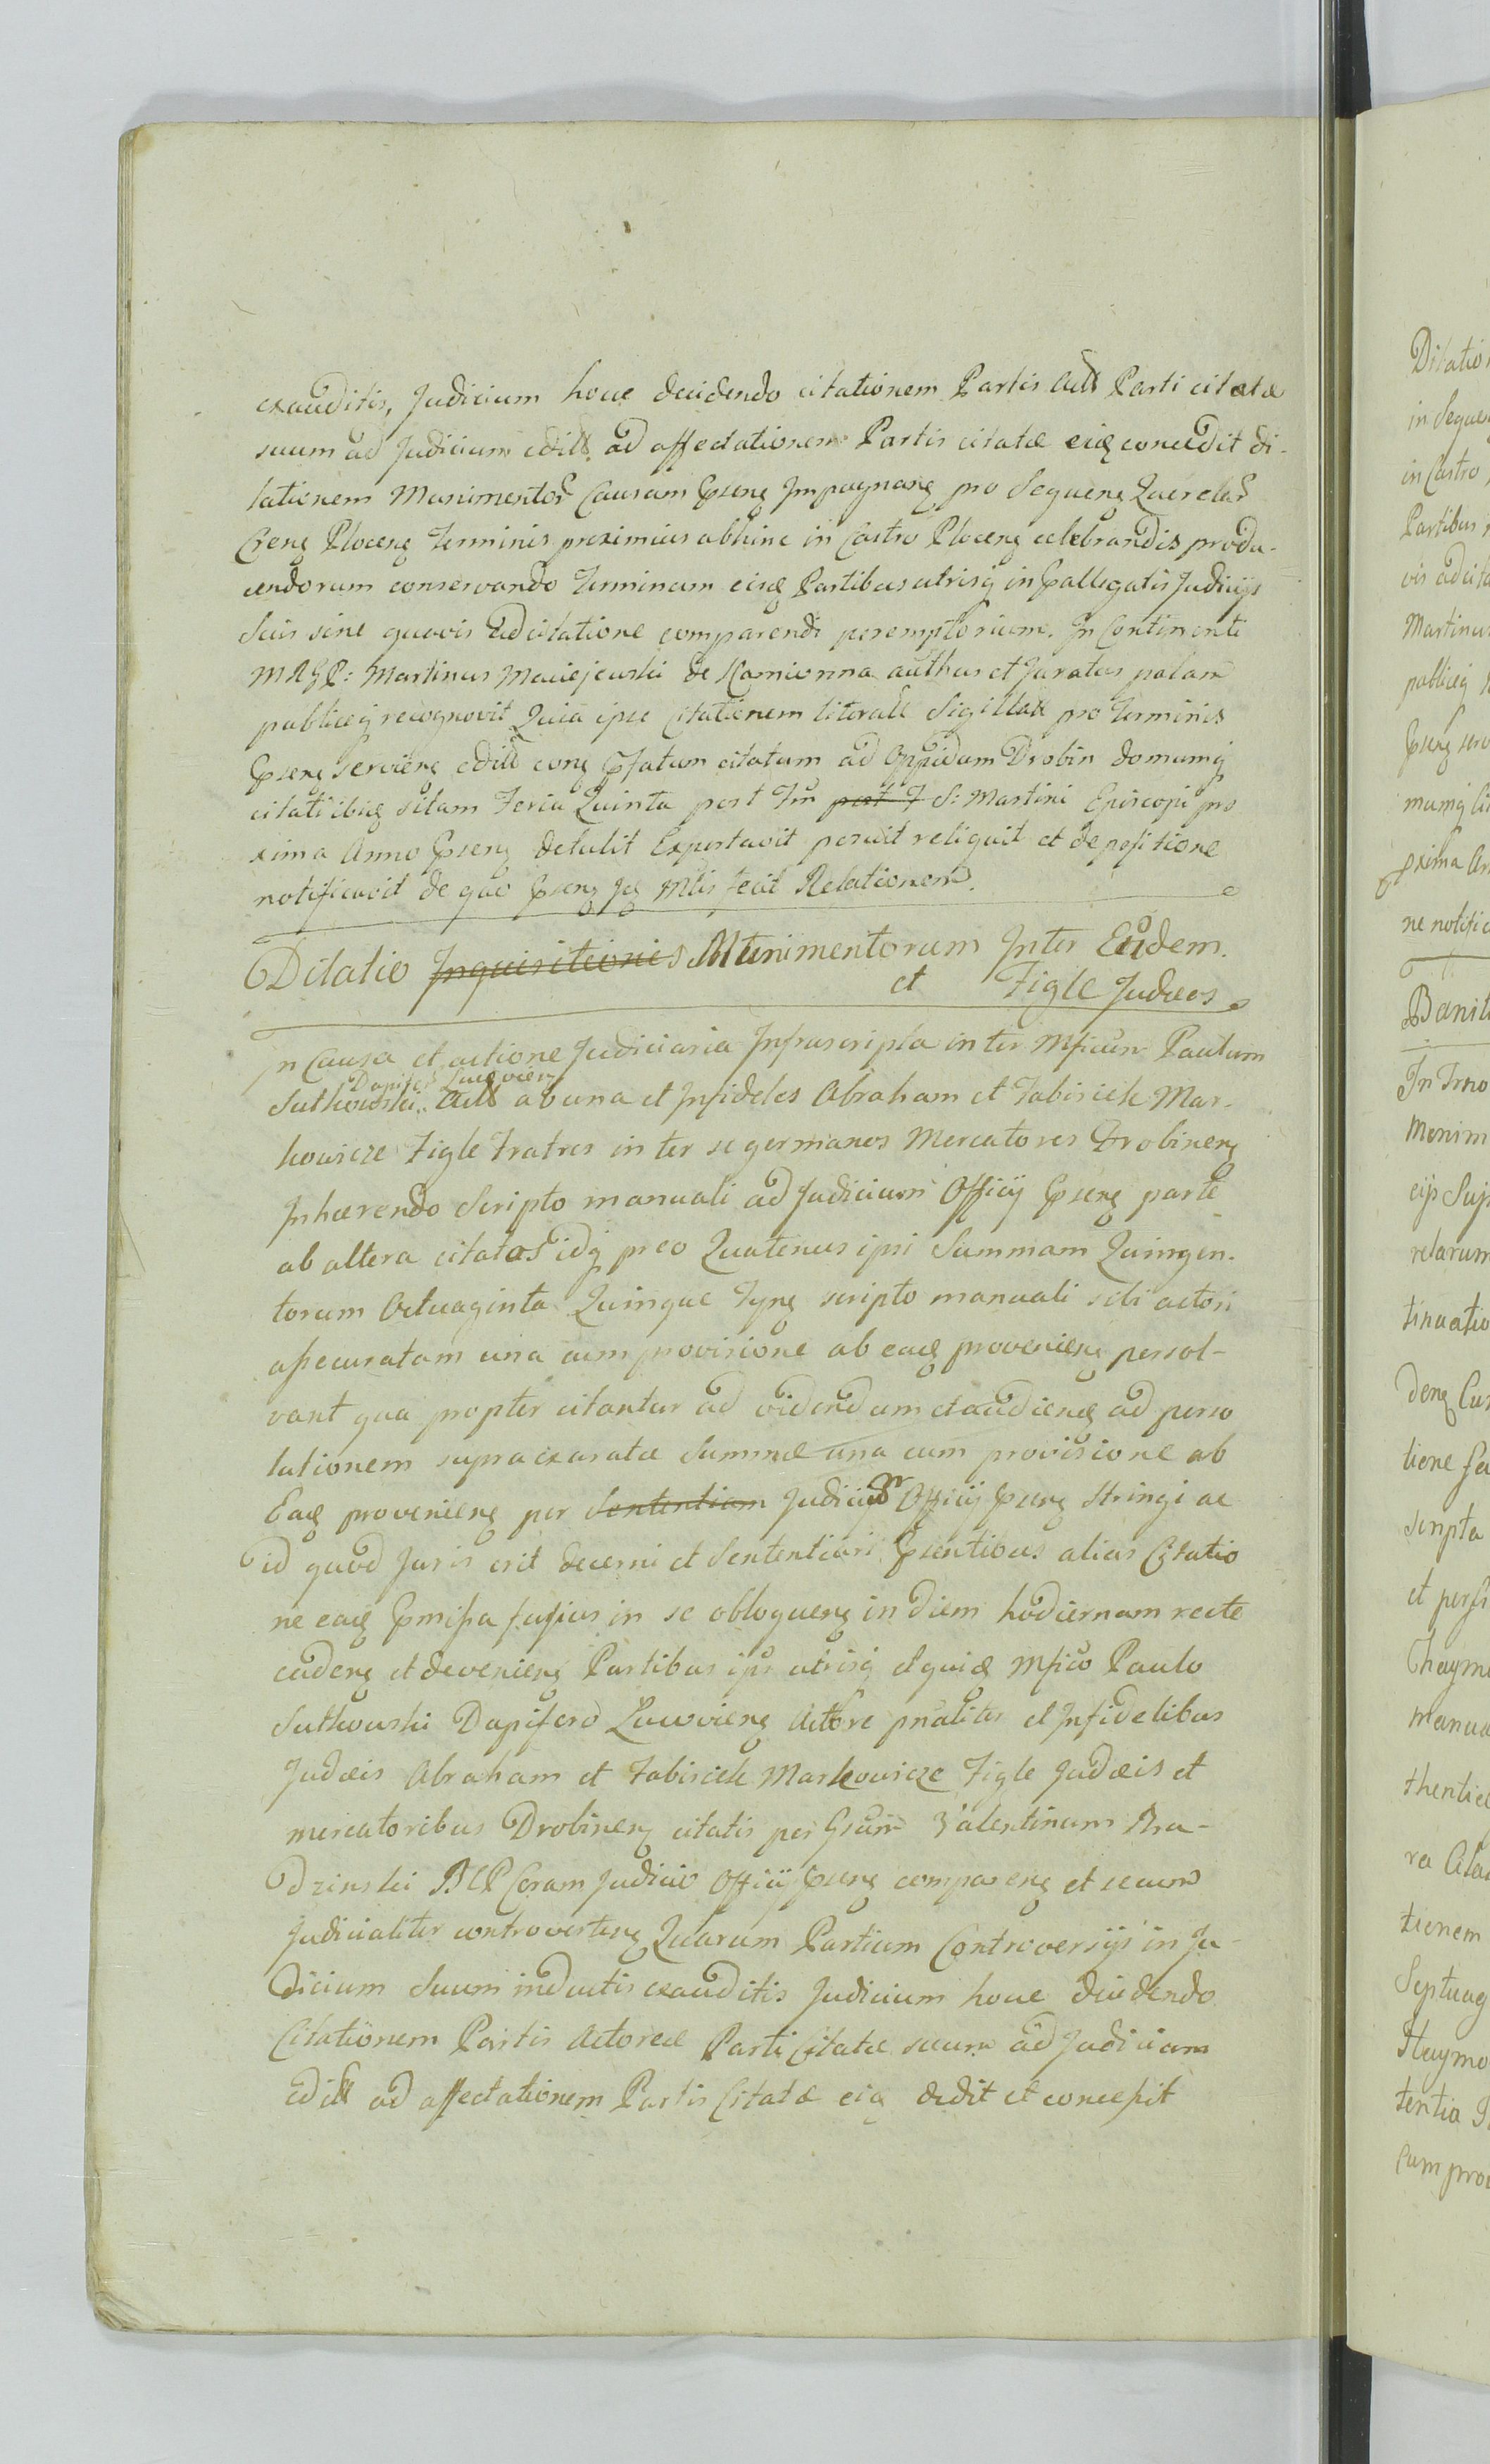 exauditis, Judicium hocce decidendo citationem Partis Actt Parti citatæ
suum ad Judicium editt ad affectationem Partis citatæ eiq concedit di-
lationem Munimentor Causam pseng Impugnang pro Sequeng Querelar
Creng Ploceng Terminis proximius abhinc in Castro Ploceng celebrandis produ-
cendorum conservando Terminum eisq Partibus utrisq in pallegatis Judicijs
Suis sine quovis adcitatione comparendi peremptorium. In Continenti
MRGP: Martinus Maciejewski de Kamionna authus et Juratus palam
publiceq recognovit Quia ipse Citationem literalt Sigillatt pro Terminis
pseng Servieng editt cong pfatum citatum ad Oppidum Drobin domumq
citati ibiq sitam Feria Quinta post Fm post F S: Martini Episcopi pro
xima Anno pseng detulit Exportavit posuit reliquit et depositione
notificavit de quo pseng Jq Mtis fecit Relationem.
Dilatio Inquisitionis Munimentorum Inter Eudem.
et Figle Judæos
In Causa et actione Judiciaria Infrascripta inter Mficum Paulum
Dapifer Lucovieng
Sutkowski Actt ab una et Infideles Abraham et Fabisiek Mar-
kowicze Figle Fratres inter se germanos Mercatores Drobineng
Inhærendo Scripto manuali ad Judicium Officij pseng parte
ab altera citatos idq pro eo Quatenus ipsi Summam Quingen-
torum Octuaginta Quinque Tynq scripto manuali sibi actori
assecuratam una cum provisione ab eaq provenieng persol-
vant qua propter citantur ad videndum et audieng ad perso
lutionem supra exaratæ Summæ una cum provisione ab
Eaq provenieng per Sententiam Judicij Officij pseng Stringi ac
id quod Juris erit decerni et Sententiari psentibus alias Citatio
ne eaq pmissa fusius in se obloqueng in diem hodiernam recte
cadeng et devenieng Partibus ips utrisq et quid Mfico Paulo
Sutkowski Dapifero Lucovieng Actore pnaliter et Infidelibus
Judæis Abraham et Fabisiek Markowicze Figle Judæis et
mercatoribus Drobineng citatis per Gsum Valentinum Bru-
dzinski BCP Coram Judicio Officij pseng compareng et secum
Judicialiter controverteng Quarum Partium Controversijs in Ju-
dicium Suum inductis exauditis Judicium hocce decidendo
Citationem Partis Actoreæ Parti Citatæ suum ad Judicium
editt ad affectationem Partis Citatæ eiq dedit et concessit